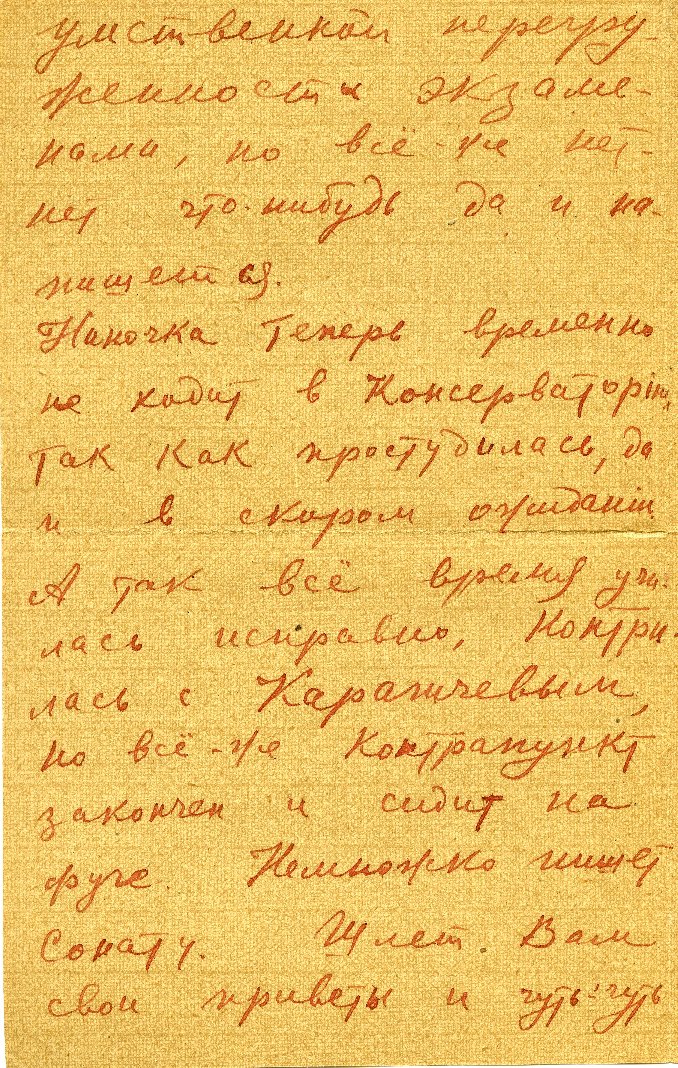 умственной перегру-
женности экзаме-
нами, но всё-же нет-
нет что-нибудь да и на-
пишется.
Ниночка теперь временно
не ходит в Консерваторіи,
так как простудилась, да
и в скором ожиданіи.
А так всё время учи-
лась исправно, контри-
лась с Карагичевым,
но всё-же контрапункт
закончен и сидит на
фуге. Немножко пишет
сонату. Шлет Вам
свои приветы и чуть-чуть